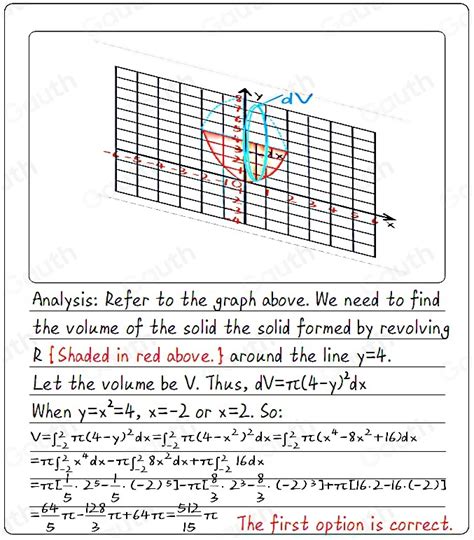 Gauth
y
8
7
6
5
dV
dx
-6 -5 -4 -3 -2
1 0
1 2 3 4 5 6
x
Analysis: Refer to the graph above. We need to find
the volume of the solid the solid formed by revolving
R {Shaded in red above.} around the line y=4.
Let the volume be V. Thus, dV=π(4-y)²dx
When y=x²=4, x=-2 or x=2. So:
V=∫₋₂² π(4-y)²dx=∫₋₂² π(4-x²)²dx=∫₋₂² π(x⁴-8x²+16)dx
=π∫₋₂² x⁴dx-π∫₋₂² 8x²dx+π∫₋₂² 16dx
=π[1/5·2⁵-1/5·(-2)⁵]-π[8/3·2³-8/3·(-2)³]+π[16·2-16·(-2)]
=64/5π-128/3π+64π=512/15π
The first option is correct.